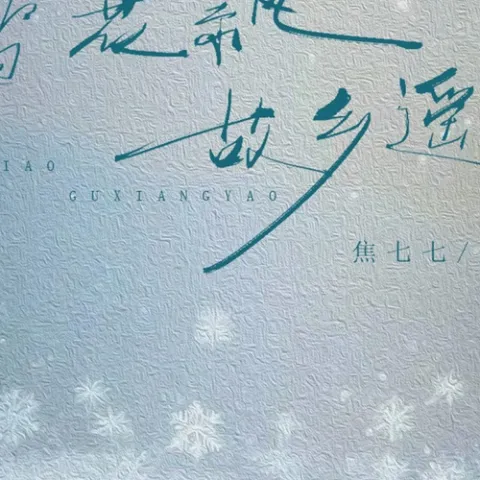 花飘
故乡遥
IAO
GUXIANGYAO
焦七七/